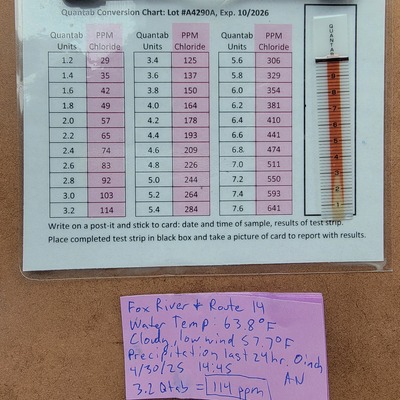 Quantab Conversion Chart: Lot #A4290A, Exp. 10/2026
Quantab Units PPM Chloride Quantab Units PPM Chloride Quantab Units PPM Chloride
1.2 29 3.4 125 5.6 306
1.4 35 3.6 137 5.8 329
1.6 42 3.8 150 6.0 354
1.8 49 4.0 164 6.2 381
2.0 57 4.2 178 6.4 410
2.2 65 4.4 193 6.6 441
2.4 74 4.6 209 6.8 474
2.6 83 4.8 226 7.0 511
2.8 92 5.0 244 7.2 550
3.0 103 5.2 264 7.4 593
3.2 114 5.4 284 7.6 641
QUANTAB
9
8
7
6
5
4
3
2
1
Write on a post-it and stick to card: date and time of sample, results of test strip.
Place completed test strip in black box and take a picture of card to report with results.
Fox River & Route 14
Water Temp: 63.8°F
Cloudy, low wind 57.7°F
Precipitation last 24hr: 0 inch
4/30/25 14:45 AN
3.2 Qtab = 114 ppm